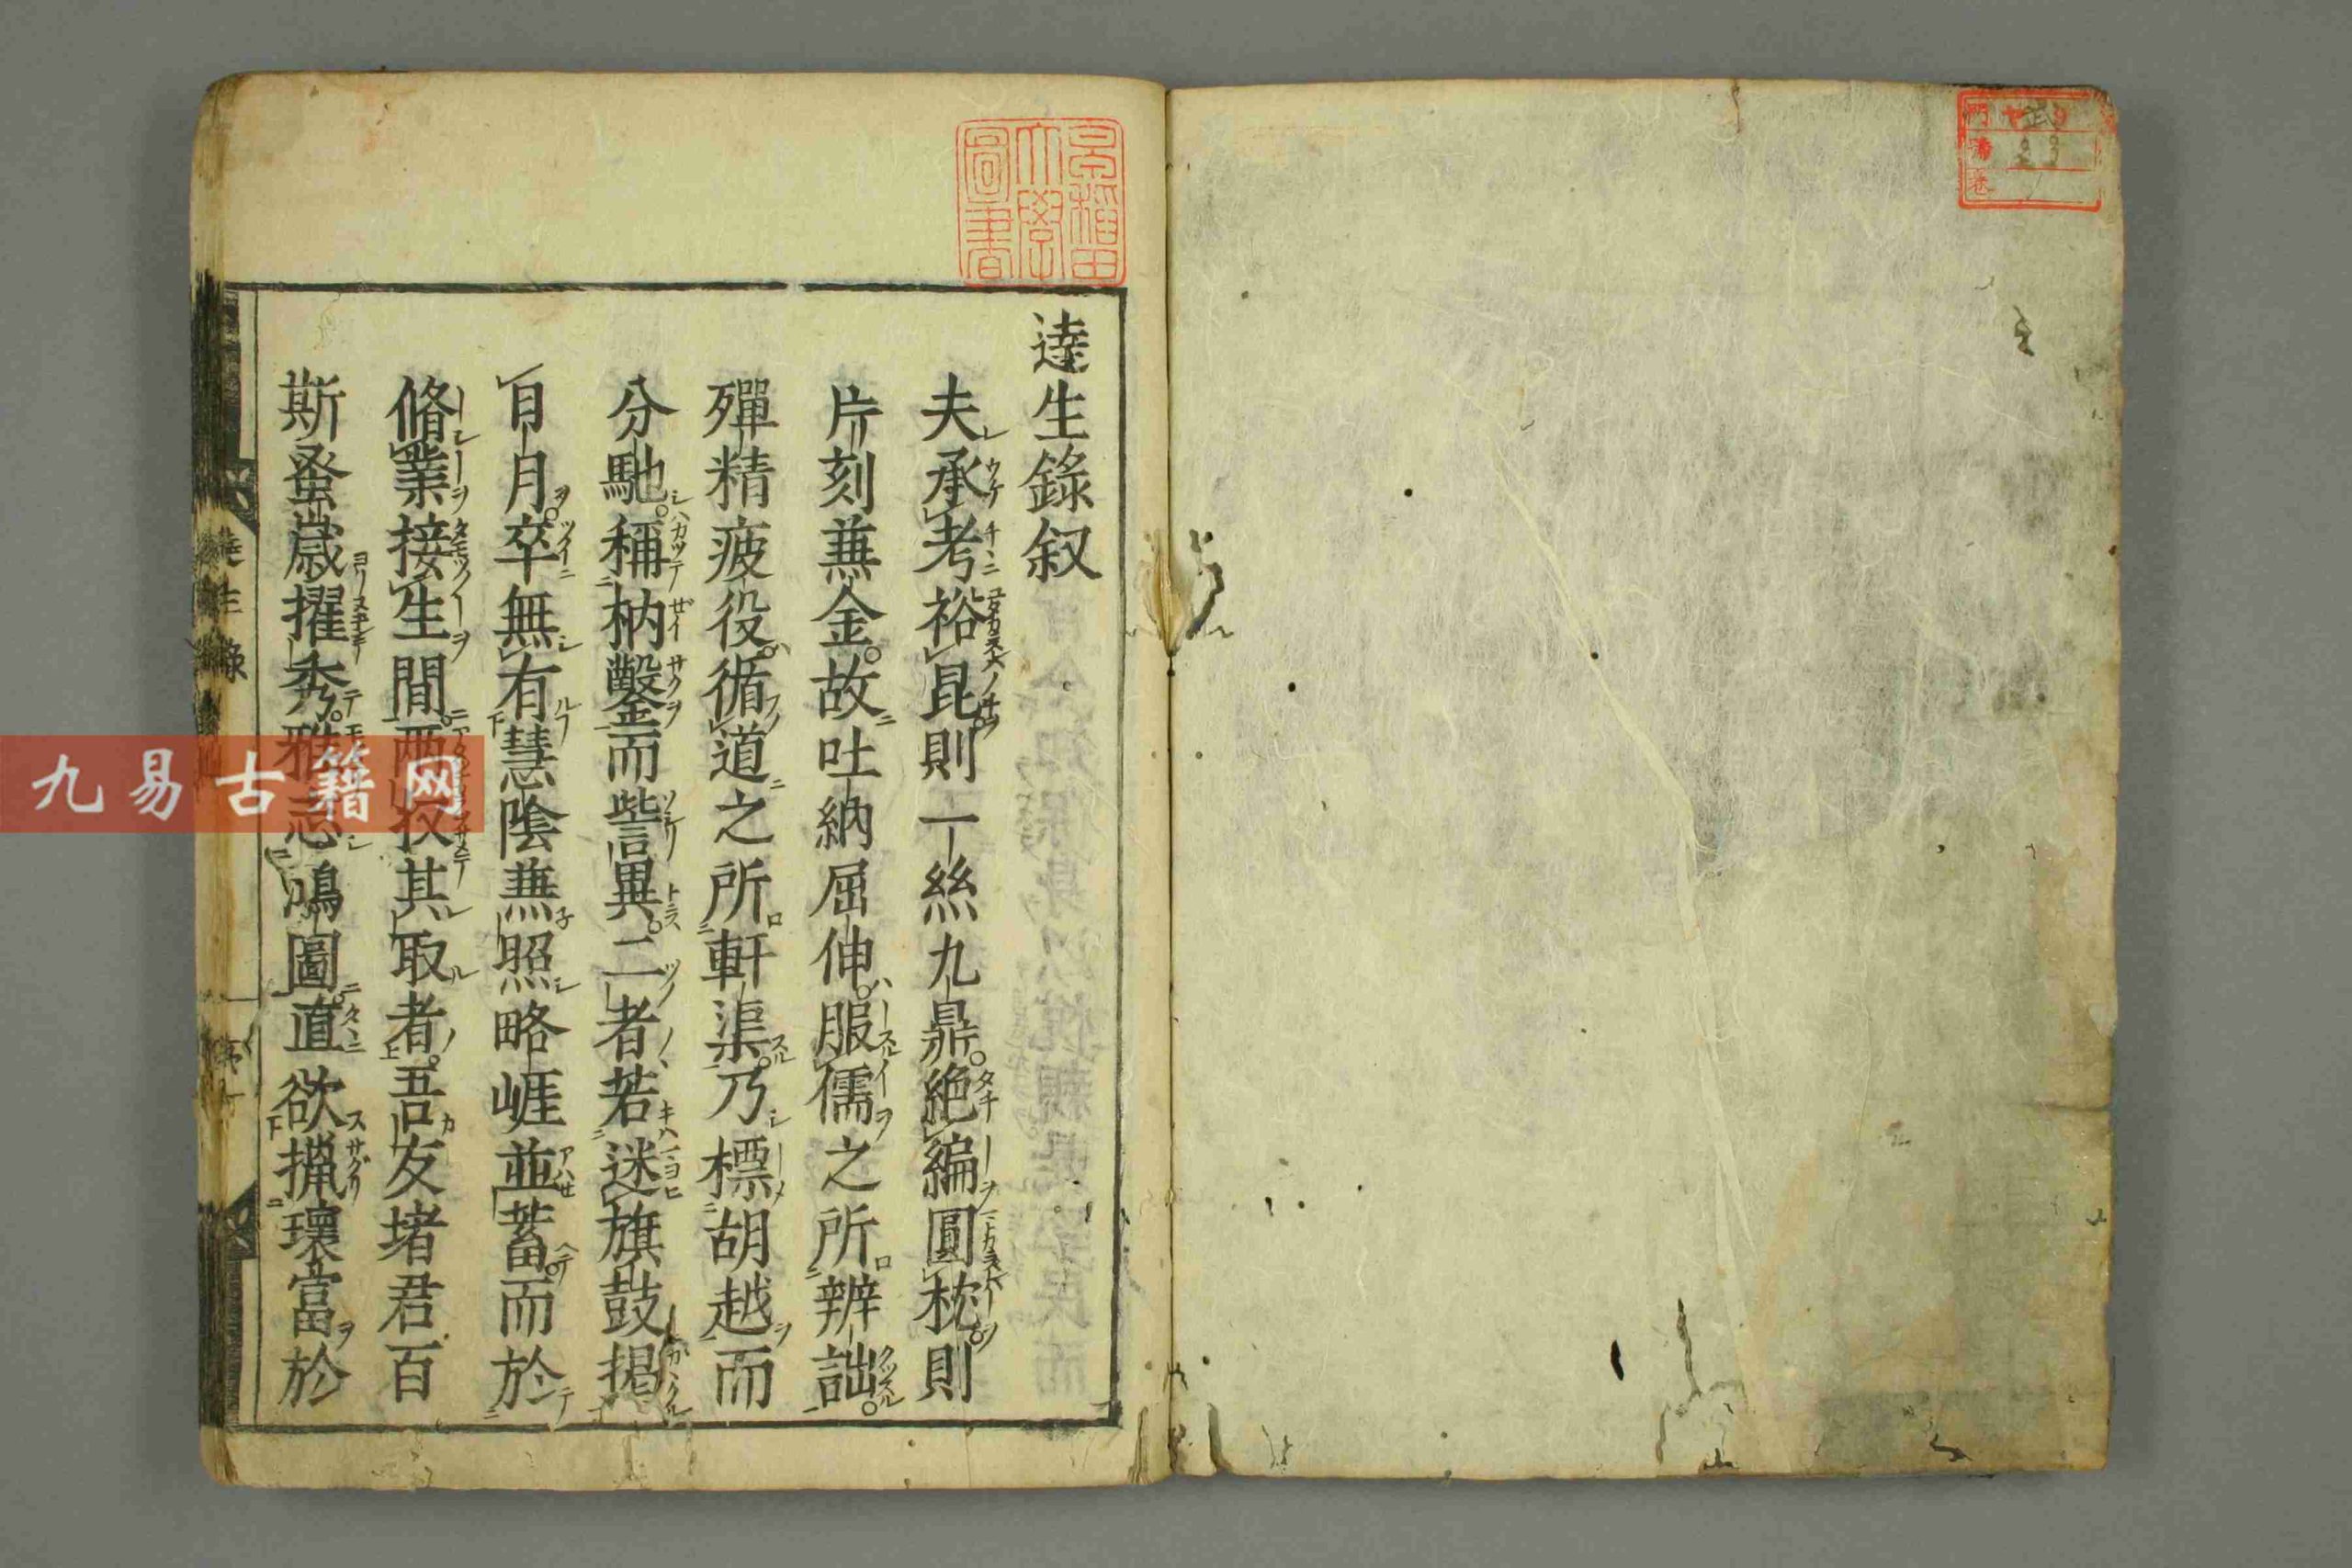 達生錄叙
夫承考裕昆則一絲九鼎絶編圓枕則
片刻兼金故吐納屈伸服儒之所辨詘
殫精疲役循道之所軒渠乃標胡越而
分馳稱枘鑿而訾異二者若迷旗鼓揭
日月卒無有慧陰兼照略崕並蓄而於
脩業接生間兩收其取者吾友堵君百
斯蚤歲擢秀雅志鳴圖直欲攄瓌當於
早稲田
大學
圖書
達生錄
九易古籍网